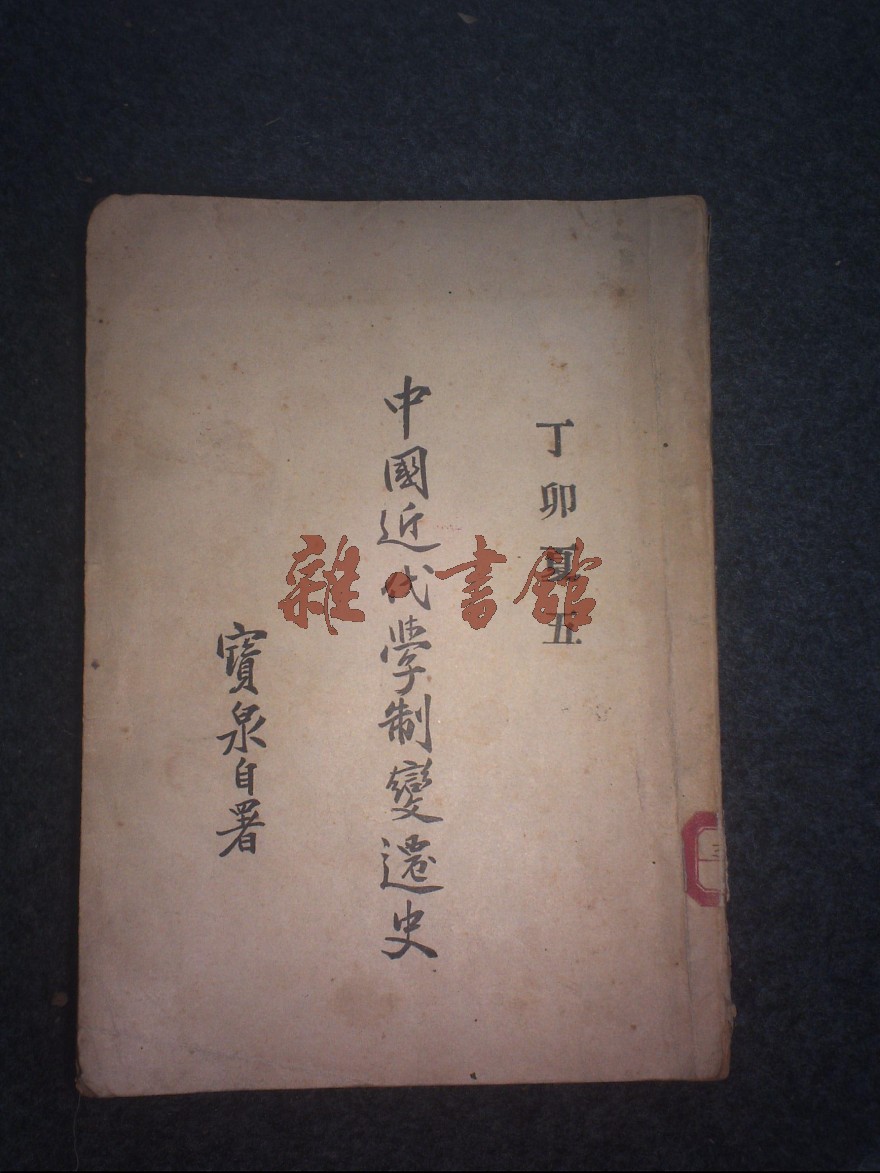 丁卯夏五
中國近代學制變遷史
寶泉自署
雜·書館
三